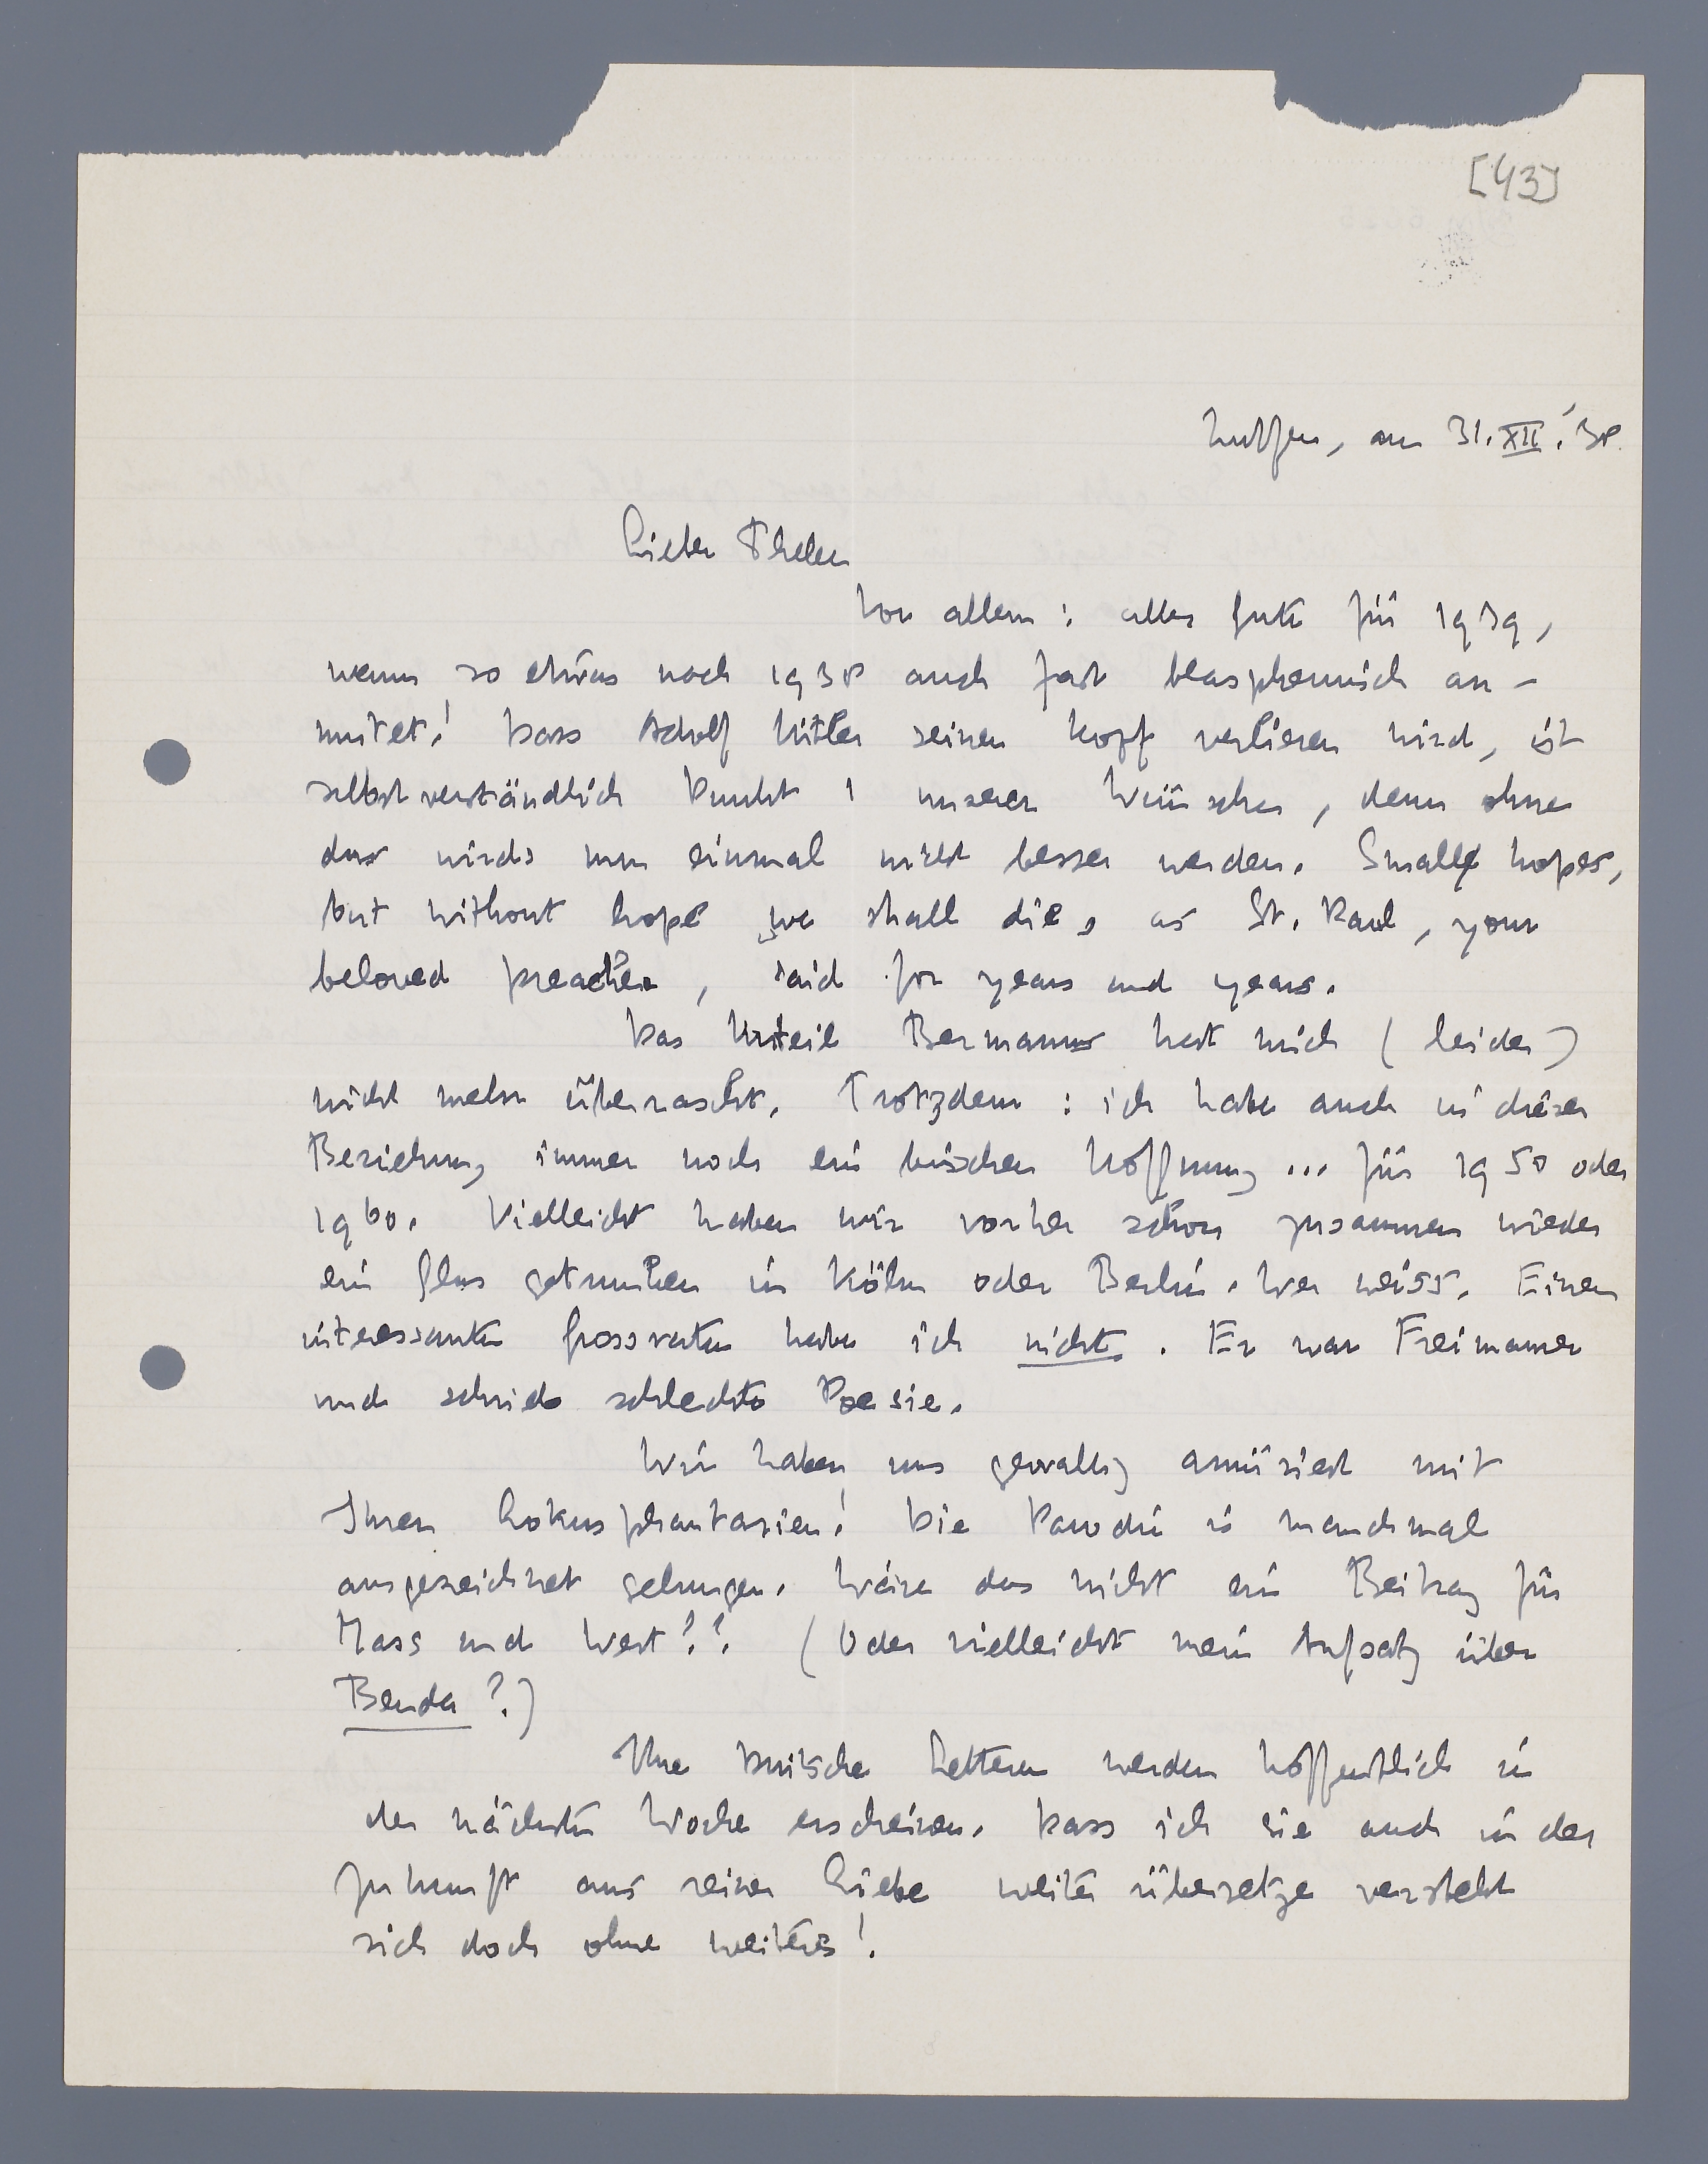 [43]
Zutfen, am 31.XII.'38.
Lieber Thelen
Vor allem: alles Gute für 1939,
wenn so etwas nach 1938 auch fast blasphemisch an-
mutet! Dass Adolf Hitler seinen Kopf verlieren wird, ist
selbstverständlich Punkt 1 unserer Wünsche, denn ohne
das wirds nun einmal nicht besser werden. Small hopes,
but without hope we shall die, as St. Paul, your
beloved preacher, said for years and years.
Das Urteil Bermanns hat mich (leider)
nicht mehr überrascht. Trotzdem: ich habe auch in dieser
Beziehung immer noch ein bischen Hoffnung ... für 1950 oder
1960. Vielleicht haben wir vorher schon zusammen wieder
ein Glas getrunken in Köln oder Berlin. Wer weiss. Einen
interessanten Grossvater habe ich nicht. Er war Freimaurer
und schrieb schlechte Poesie.
Wir haben uns gewaltig amüsiert mit
Ihren Lokusphantasien! Die Parodie is manchmal
ausgezeichnet gelungen. Wäre das nicht ein Beitrag für
Mass und Wert?? (Oder vielleicht mein Aufsatz über
Benda?)
Ihre Duitsche Letteren werden hoffentlich in
der nächsten Woche erscheinen. Dass ich sie auch in der
Zukunft aus reiner Liebe weiter übersetze versteht
sich doch ohne weiteres!